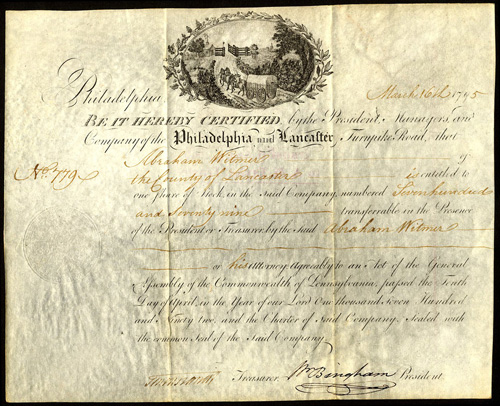 Philadelphia March 16th 1795
BE IT HEREBY CERTIFIED, by the President, Managers, and
Company of the Philadelphia and Lancaster Turnpike Road, that
Abraham Witmer of
No. 779
the County of Lancaster is entitled to
one Share of Stock in the Said Company, numbered Seven hundred
and Seventy nine transferrable in the Presence
of the President or Treasurer, by the Said Abraham Witmer
or his Attorney Agreeably to an Act of the General
Assembly of the Commonwealth of Pennsylvania, passed the Tenth
Day of April, in the Year of our Lord One thousand Seven Hundred
and Ninety two, and the Charter of Said Company, Sealed with
the common Seal of the Said Company
Treasurer. Wm Bingham President